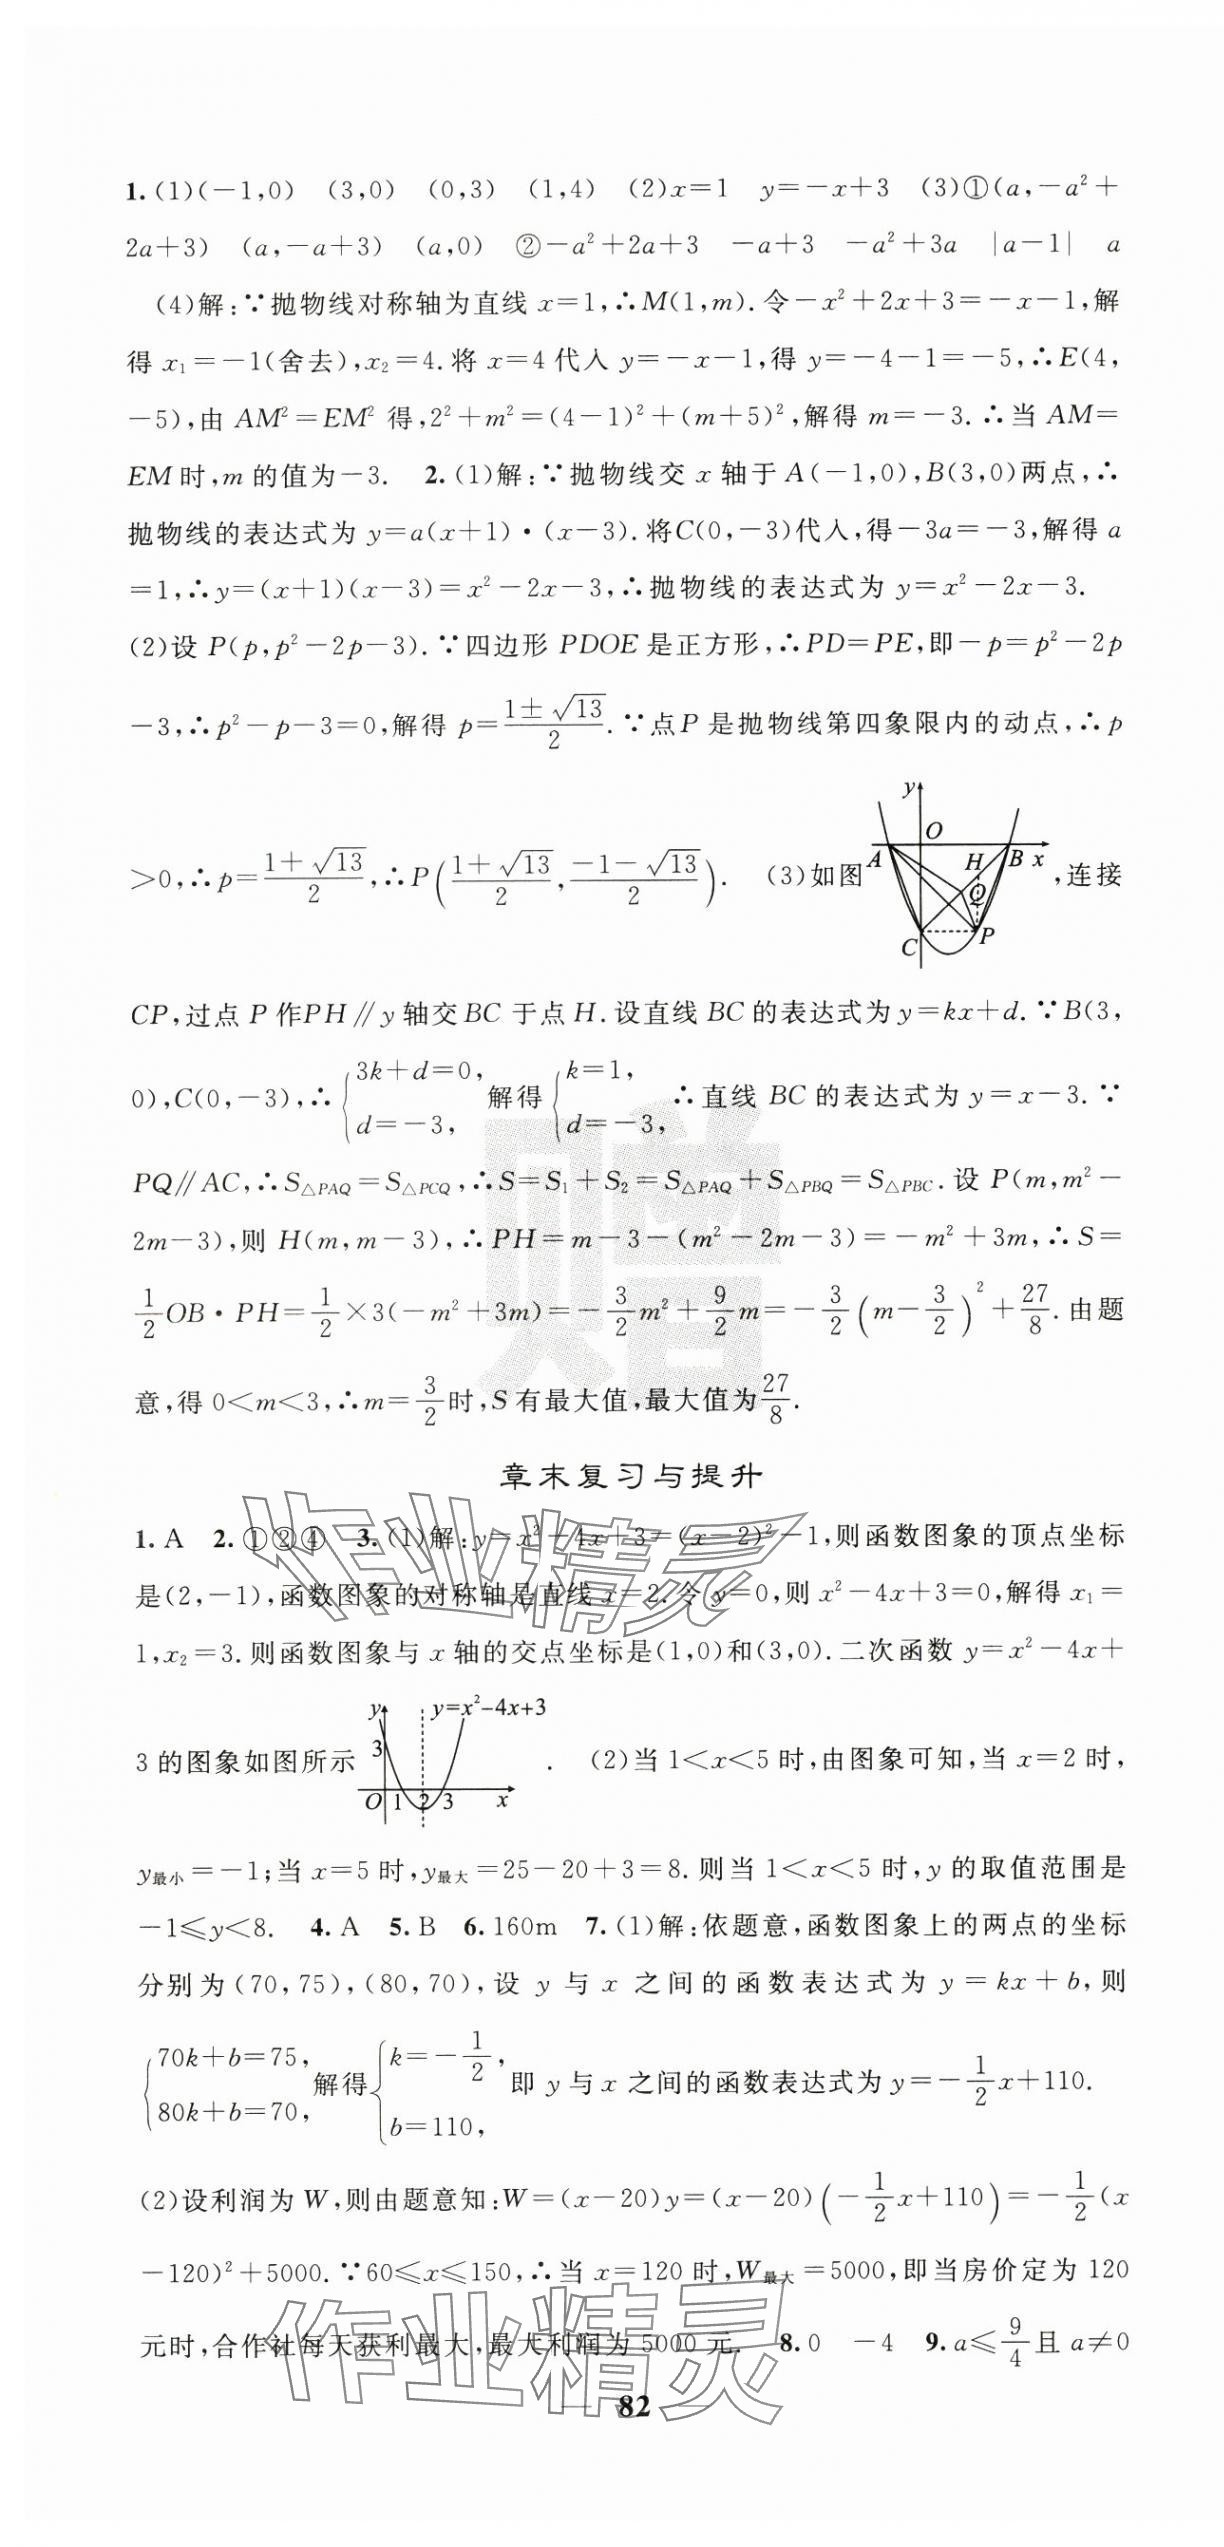 1.(1)(-1,0) (3,0) (0,3) (1,4) (2)x=1 y=-x+3 (3)①(a,-a²+
2a+3) (a,-a+3) (a,0) ②-a²+2a+3 -a+3 -a²+3a |a-1| a
(4)解:∵抛物线对称轴为直线 x=1,∴M(1,m).令-x²+2x+3=-x-1,解
得 x₁=-1(舍去),x₂=4.将 x=4 代入 y=-x-1,得 y=-4-1=-5,∴E(4,
-5),由 AM²=EM² 得,2²+m²=(4-1)²+(m+5)²,解得 m=-3.∴当 AM=
EM 时,m 的值为-3. 2.(1)解:∵抛物线交 x 轴于 A(-1,0),B(3,0)两点,∴
抛物线的表达式为 y=a(x+1)·(x-3).将C(0,-3)代入,得-3a=-3,解得 a
=1,∴y=(x+1)(x-3)=x²-2x-3,∴抛物线的表达式为 y=x²-2x-3.
(2)设 P(p,p²-2p-3).∵四边形 PDOE 是正方形,∴PD=PE,即-p=p²-2p
-3,∴p²-p-3=0,解得 p=(1±√13)/2.∵点P 是抛物线第四象限内的动点,∴p
>0,∴p=(1+√13)/2,∴P((1+√13)/2,(-1-√13)/2). (3)如图 y O A H B x Q C P ,连接
CP,过点 P 作PH∥y 轴交 BC 于点 H.设直线 BC 的表达式为 y=kx+d.∵B(3,
0),C(0,-3),∴{3k+d=0, d=-3, 解得{k=1, d=-3, ∴直线 BC 的表达式为 y=x-3.∵
PQ∥AC,∴S△PAQ=S△PCQ,∴S=S₁+S₂=S△PAQ+S△PBQ=S△PBC.设 P(m,m²-
2m-3),则 H(m,m-3),∴PH=m-3-(m²-2m-3)=-m²+3m,∴S=
1/2 OB·PH=1/2×3(-m²+3m)=-3/2 m²+9/2 m=-3/2(m-3/2)²+27/8.由题
意,得 0<m<3,∴m=3/2时,S 有最大值,最大值为27/8.
章末复习与提升
1.A 2.①②④ 3.(1)解:y=x²-4x+3=(x-2)²-1,则函数图象的顶点坐标
是(2,-1),函数图象的对称轴是直线 x=2.令 y=0,则 x²-4x+3=0,解得 x₁=
1,x₂=3.则函数图象与 x 轴的交点坐标是(1,0)和(3,0).二次函数 y=x²-4x+
3 的图象如图所示 y y=x²-4x+3 3 O 1 2 3 x . (2)当 1<x<5 时,由图象可知,当 x=2 时,
y最小=-1;当 x=5 时,y最大=25-20+3=8.则当 1<x<5 时,y 的取值范围是
-1≤y<8. 4.A 5.B 6.160m 7.(1)解:依题意,函数图象上的两点的坐标
分别为(70,75),(80,70),设 y 与 x 之间的函数表达式为 y=kx+b,则
{70k+b=75, 80k+b=70, 解得{k=-1/2, b=110, 即 y 与 x 之间的函数表达式为 y=-1/2 x+110.
(2)设利润为 W,则由题意知:W=(x-20)y=(x-20)(-1/2 x+110)=-1/2(x
-120)²+5000.∵60≤x≤150,∴当 x=120 时,W最大=5000,即当房价定为 120
元时,合作社每天获利最大,最大利润为 5000 元. 8.0 -4 9.a≤9/4且 a≠0
82
赠
作业精灵
作业精灵